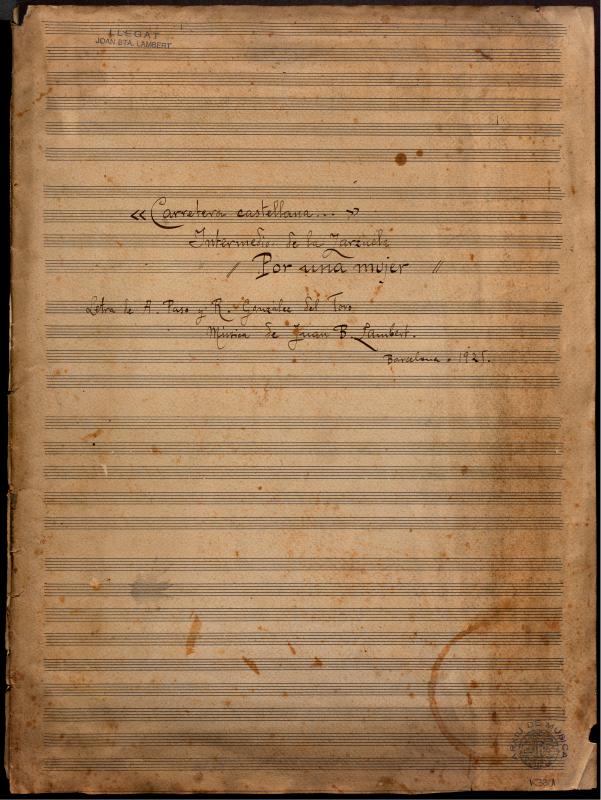 LLEGAT
JOAN BTA. LAMBERT
« Carretera castellana... »
Intermedio de la Zarzuela
/ Por una mujer //
Letra de A. Paso y R. González del Toro
Música de Juan B. Lambert.
Barcelona - 1925.
ARXIU DE MUSICA